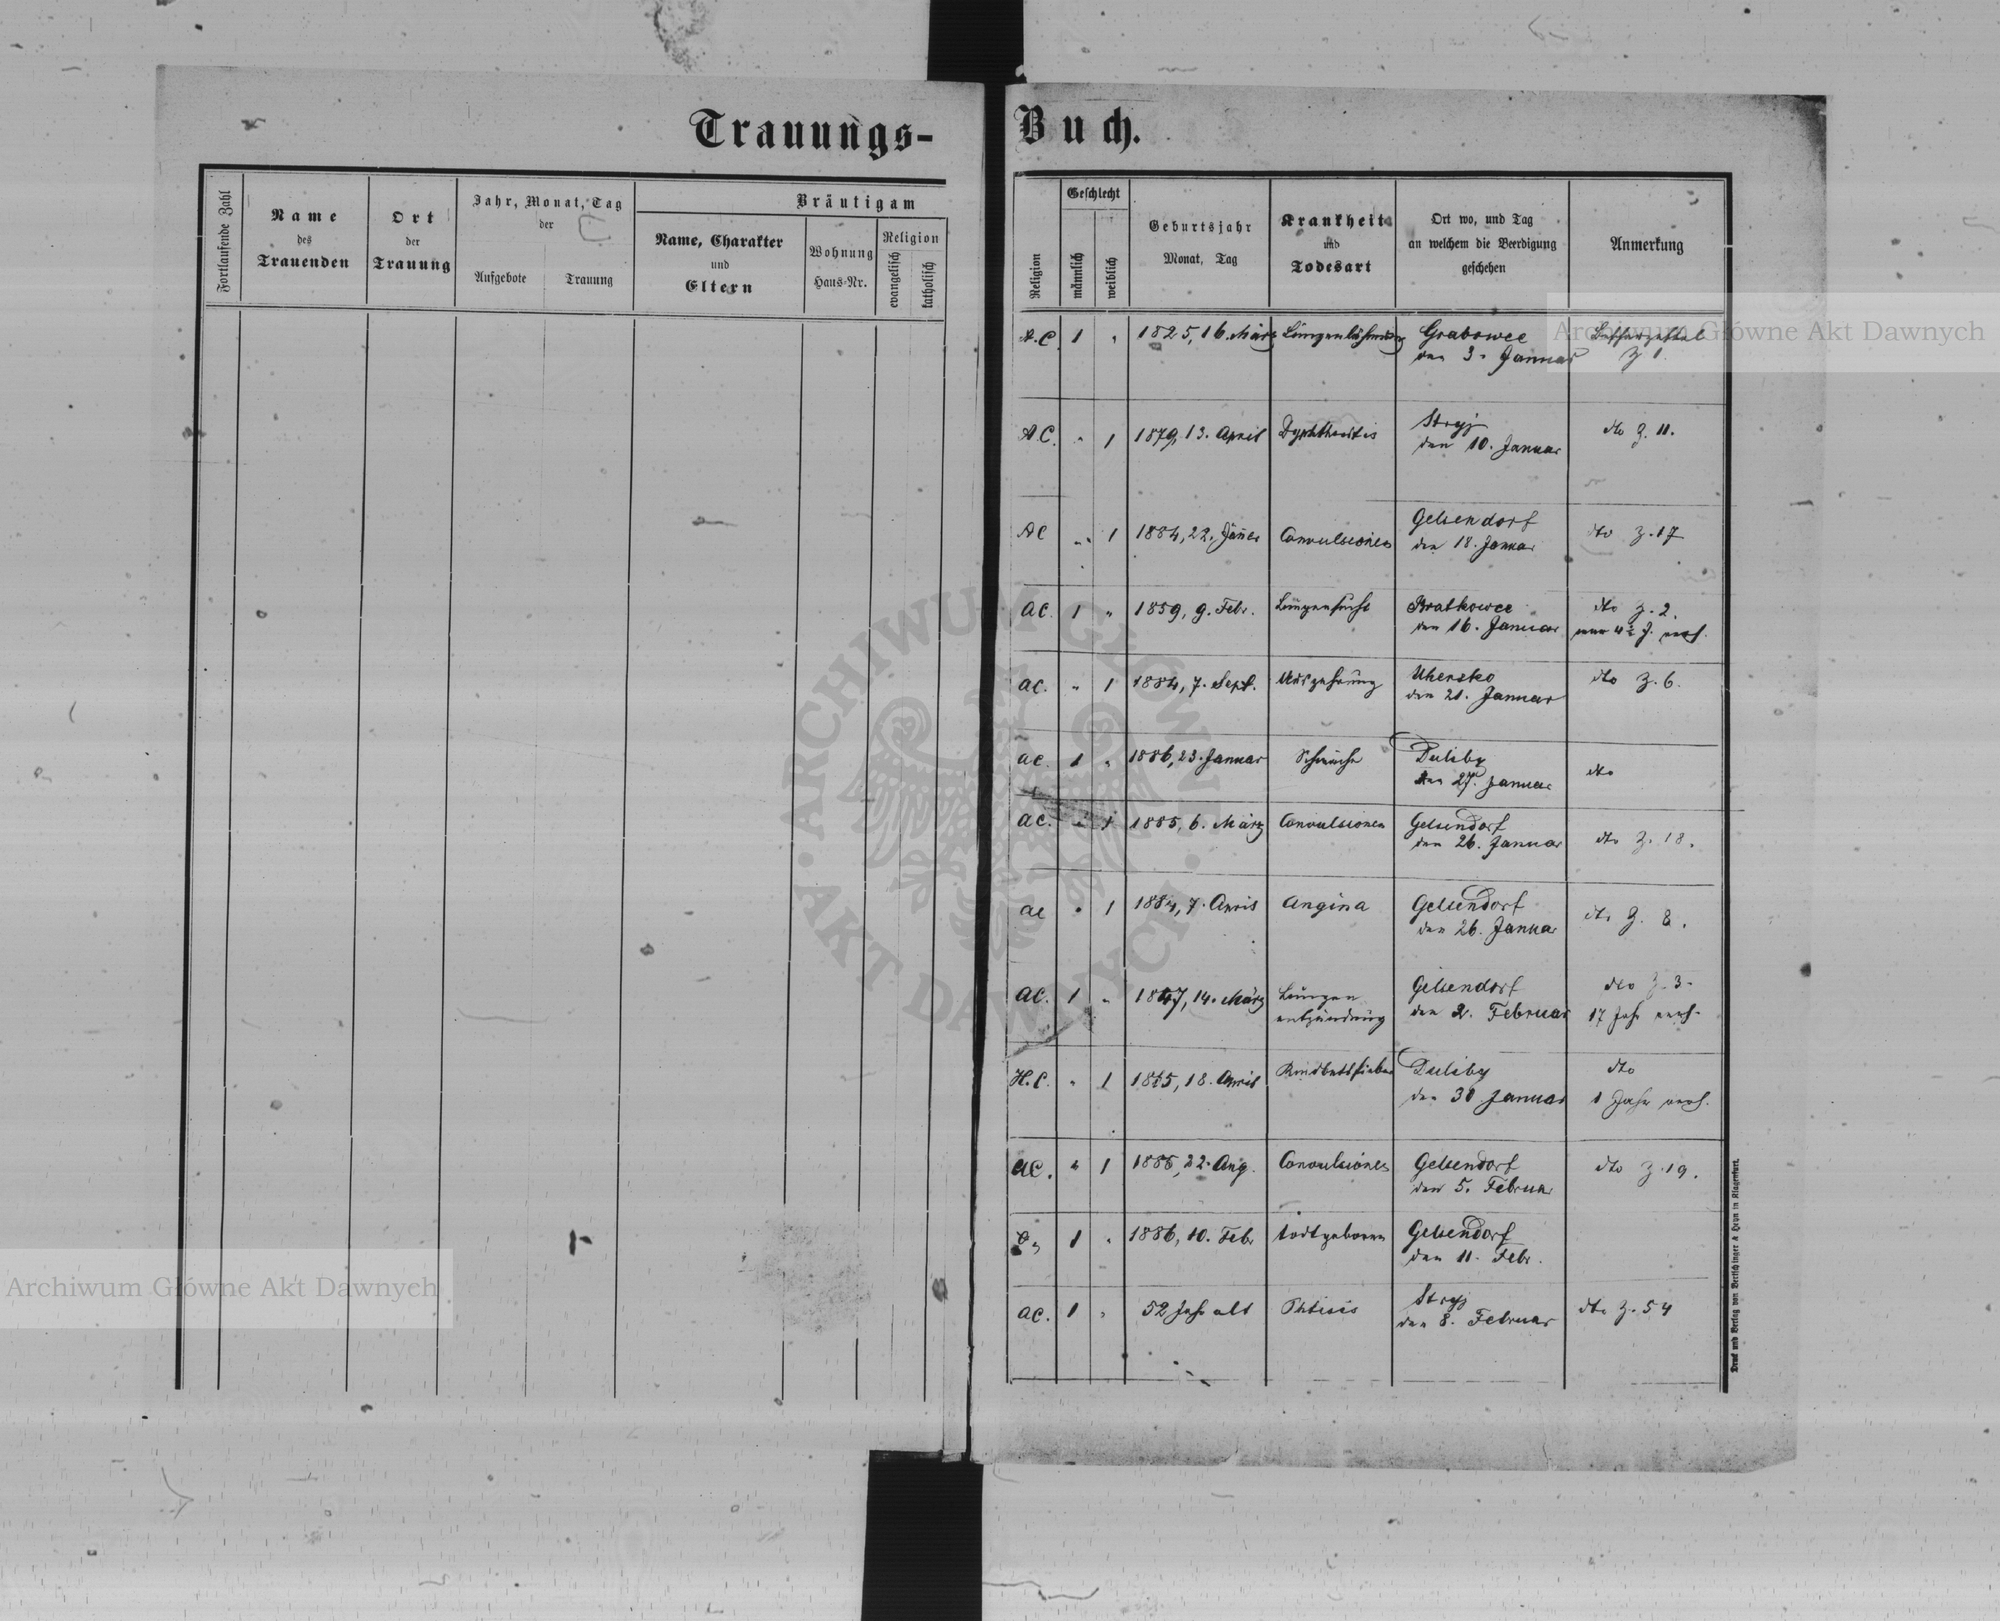 Trauungs-
Buch.
Fortlaufende Zahl
Name
des
Trauenden
Ort
der
Trauung
Jahr, Monat, Tag
der
Aufgebote
Trauung
Bräutigam
Name, Charakter
und
Eltern
Wohnung
Haus-Nr.
Religion
evangelisch
katholisch
Religion
Geschlecht
männlich
weiblich
Geburtsjahr
Monat, Tag
Krankheit
und
Todesart
Ort wo, und Tag
an welchem die Beerdigung
geschehen
Anmerkung
A.C. 1 " 1825, 16. März Lungenlähmung Grabowce
den 3. Januar
Z 1.
A.C. " 1 1879, 13. April Dyphtheritis Stryj
den 10. Januar
dto Z. 11.
AC " 1 1884, 22. Jäner Convulsionen Gelsendorf
den 18. Januar
dto Z. 17
AC. 1 " 1859, 9. Febr. Lungensucht Bratkowce
den 16. Januar
dto Z. 2.
AC. " 1 1884, 7. Sept. Auszehrung Uhersko
den 21. Januar
dto Z. 6.
AC. 1 " 1886, 23. Januar Schwäche Duliby
den 27. Januar
dto
AC. " 1 1885, 6. März Convulsionen Gelsendorf
den 26. Januar
dto Z. 18.
AC " 1 1884, 7. April Angina Gelsendorf
den 26. Januar
dto Z. 8.
AC. 1 " 1847, 14. März Lungen
entzündung
Gelsendorf
den 2. Februar
dto Z. 3.
17 Jahr verh.
H.C. " 1 18. April Kindbettfieber Duliby
den 30 Januar
dto
1 Jahr verh.
AC. " 1 1885, 22. Aug. Convulsionen Gelsendorf
den 5. Februar
dto Z. 19.
1 " 1886, 10. Febr. todtgeboren Gelsendorf
den 11. Febr.
AC. 1 " 52 Jahr alt Phtisis Stryj
den 8. Februar
dto Z. 54
Druck und Verlag von Bertschinger & Heyn in Klagenfurt.
Archiwum Główne Akt Dawnych
Archiwum Główne Akt Dawnych
ARCHIWUM GŁÓWNE
AKT DAWNYCH